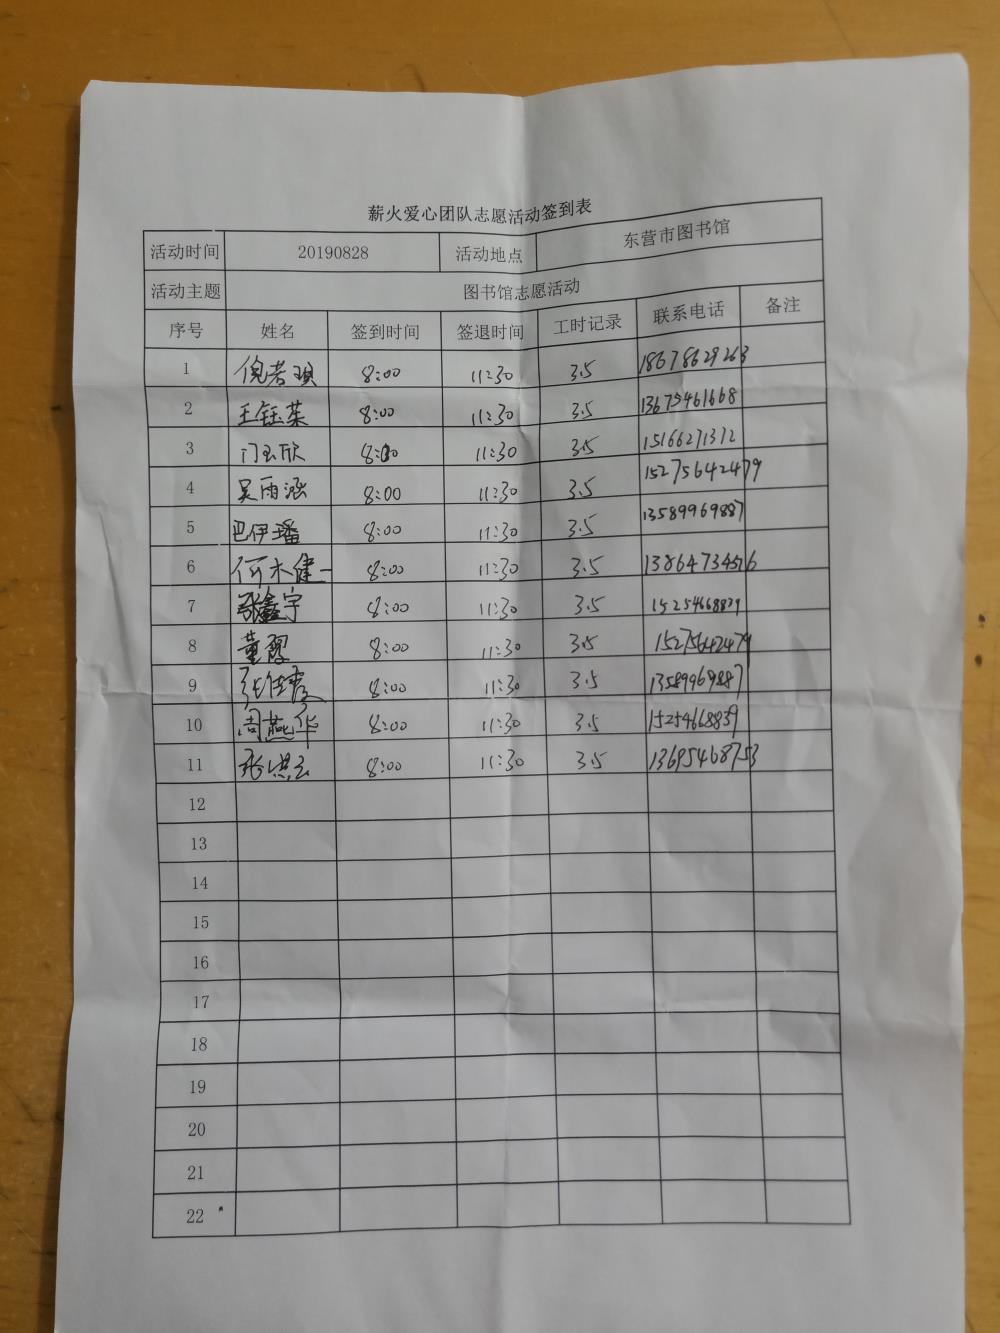 薪火爱心团队志愿活动签到表
活动时间 20190828 活动地点 东营市图书馆
活动主题 图书馆志愿活动
序号 姓名 签到时间 签退时间 工时记录 联系电话 备注
1 倪 8:00 11:30 3.5 18678629263
2 王钰莱 8:00 11:30 3.5 13675461668
3 门玉欣 8:00 11:30 3.5 15166271372
4 吴雨涵 8:00 11:30 3.5 15275642479
5 巴伊璠 8:00 11:30 3.5 13589969887
6 何木健一 8:00 11:30 3.5
7 张鑫宇 8:00 11:30 3.5
8 董 8:00 11:30 3.5 15275642479
9 张佳霞 8:00 11:30 3.5 13589969887
10 周燕华 8:00 11:30 3.5 15254668839
11 张洪云 8:00 11:30 3.5 13695468753
12
13
14
15
16
17
18
19
20
21
22